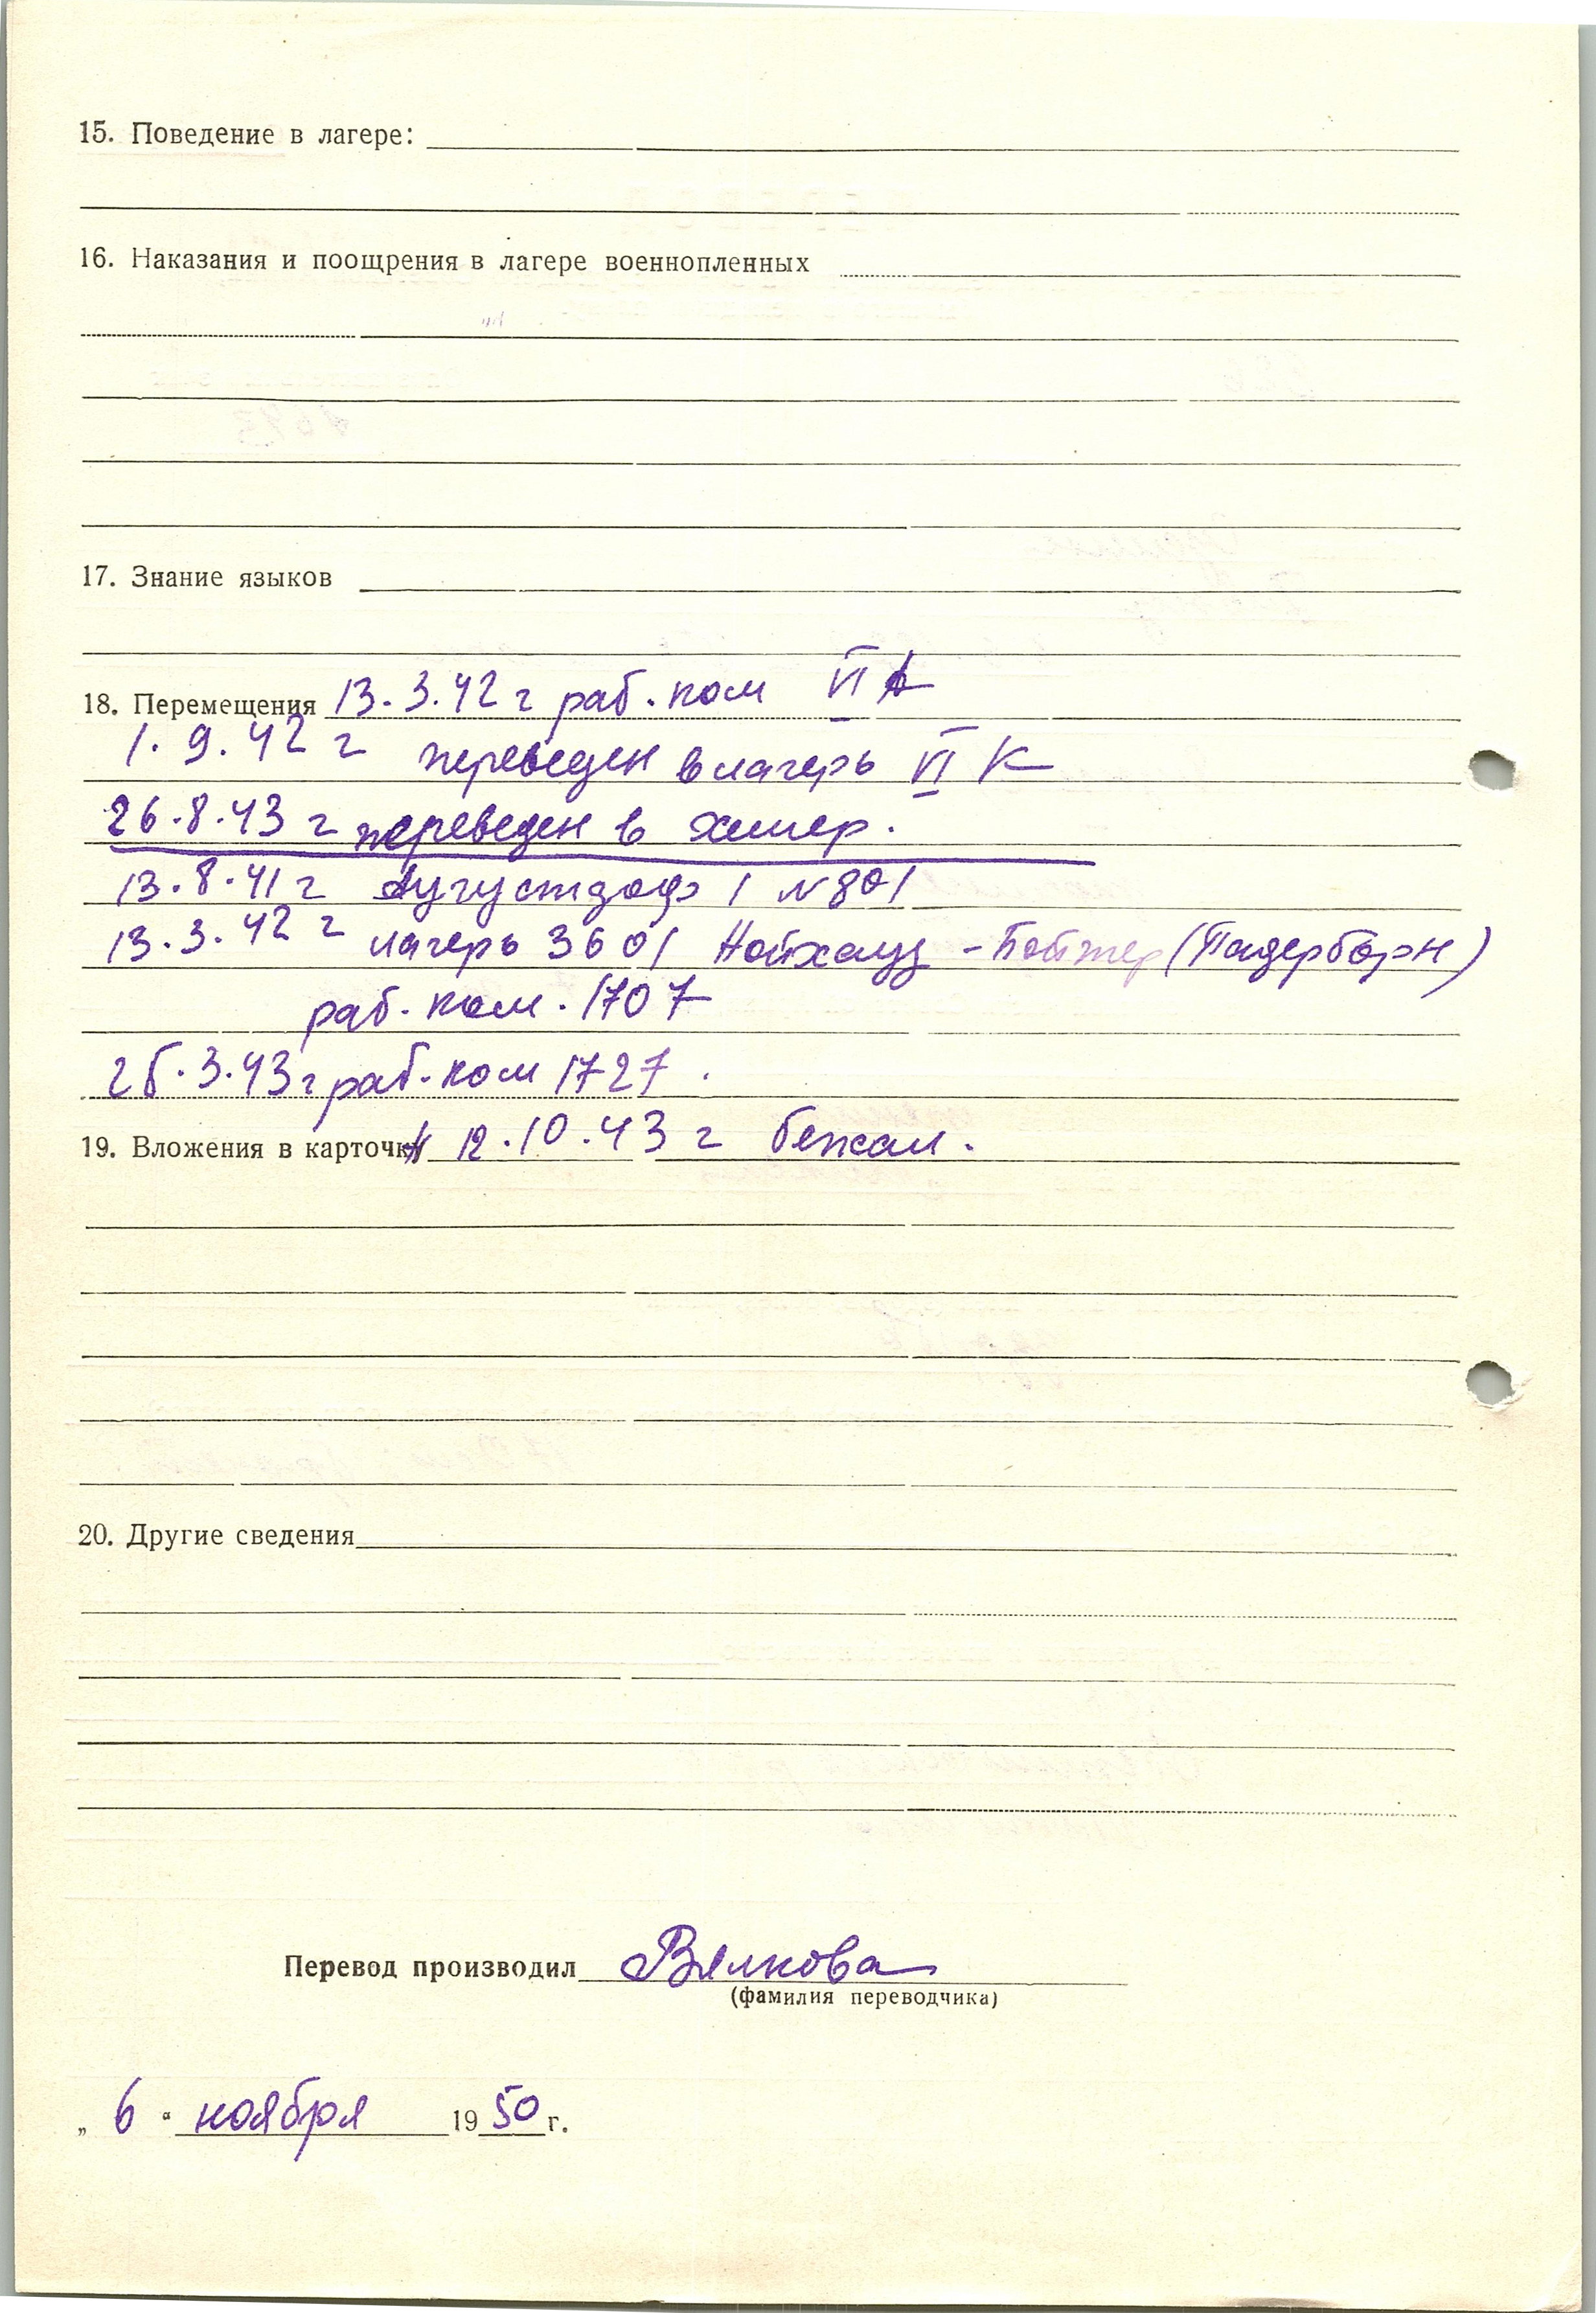 15. Поведение в лагере:
16. Наказания и поощрения в лагере военнопленных
17. Знание языков
18. Перемещения 13.3.42 г раб. ком VI А
1.9.42 г переведен в лагерь VI К
26.8.43 г переведен в Хемер.
13.8.41 г Аугустдорф 1 N 801
13.3.42 г лагерь 3601 Нойхауз - (Падерборн)
раб. ком. 1707
25.3.43 г раб. ком 1727.
19. Вложения в карточки 12.10.43 г бежал.
20. Другие сведения
Перевод производил Вялкова
(фамилия переводчика)
„ 6 “ ноября 1950 г.